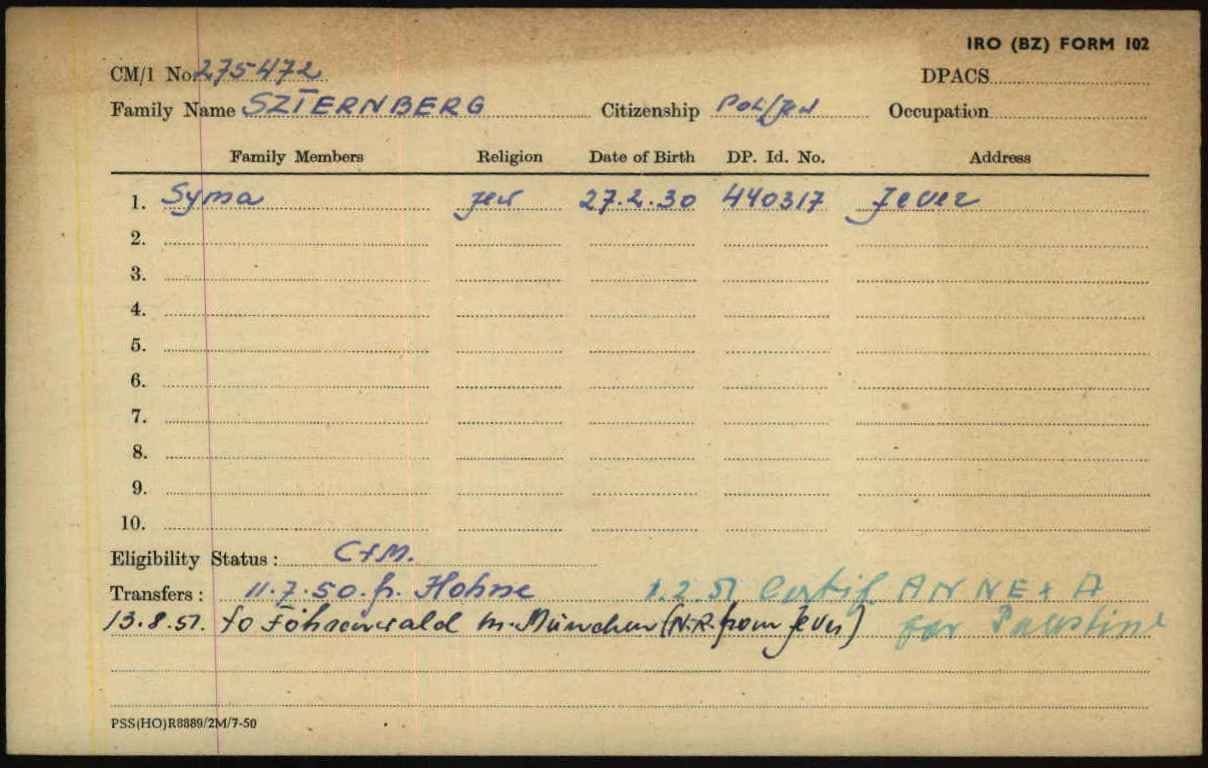 IRO (BZ) FORM 102
CM/1 No. 275472 DPACS
Family Name SZTERNBERG Citizenship Pol/Jew Occupation
Family Members Religion Date of Birth DP. Id. No. Address
1. Syma jew 27.2.30 440317 Jever
2.
3.
4.
5.
6.
7.
8.
9.
10.
Eligibility Status: C+M.
Transfers: 11.7.50. fr. Hohne 1.2.51 Certif ANNEX A
13.8.51. to Föhrenwald München (N.R. from Jever) for Palestine
PSS(HO)R8889/2M/7-50